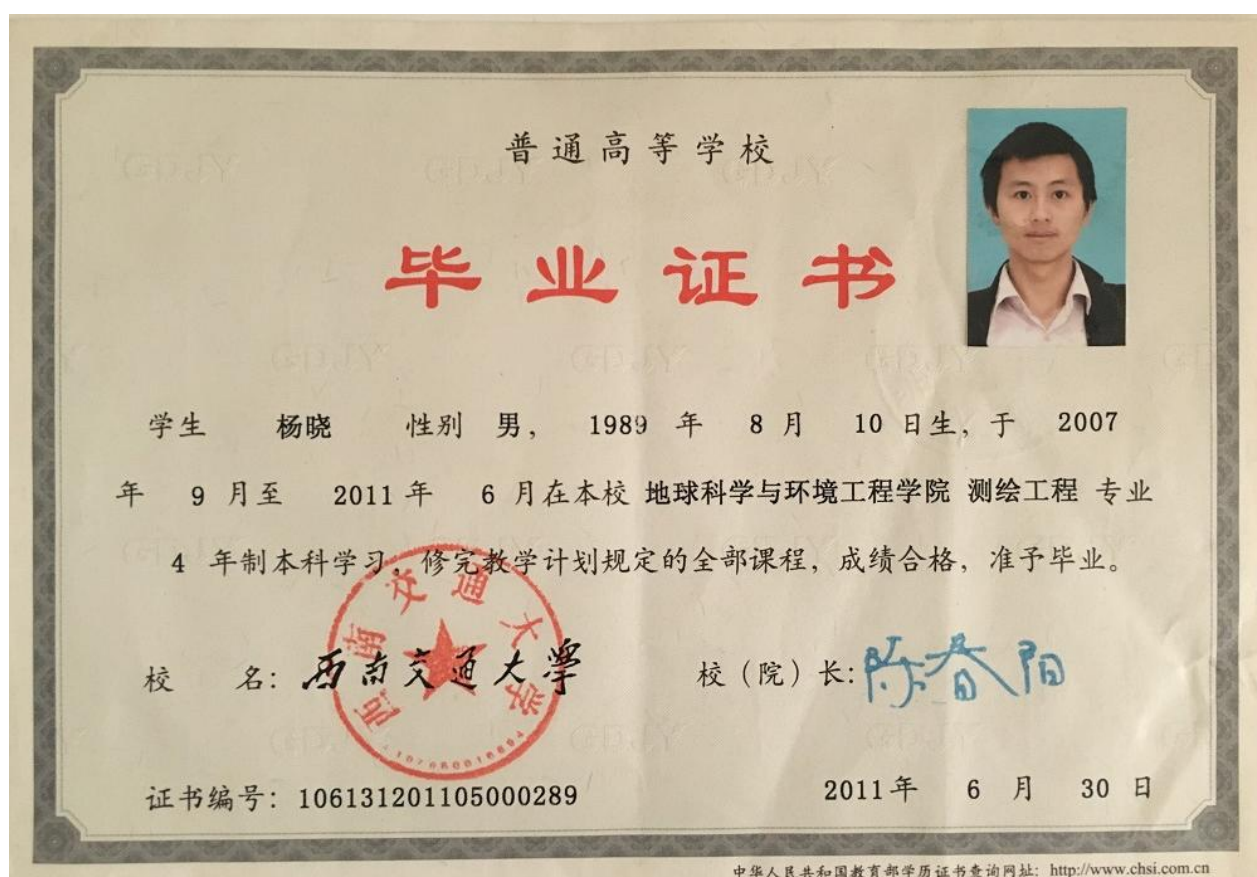 普通高等学校
毕业证书
学生 杨晓 性别 男， 1989 年 8 月 10 日生，于 2007
年 9 月至 2011 年 6 月在本校 地球科学与环境工程学院 测绘工程 专业
4 年制本科学习，修完教学计划规定的全部课程，成绩合格，准予毕业。
西南交通大学
校 名：西南交通大學 校（院）长：陈春阳
证书编号：106131201105000289 2011 年 6 月 30 日
中华人民共和国教育部学历证书查询网址：http://www.chsi.com.cn